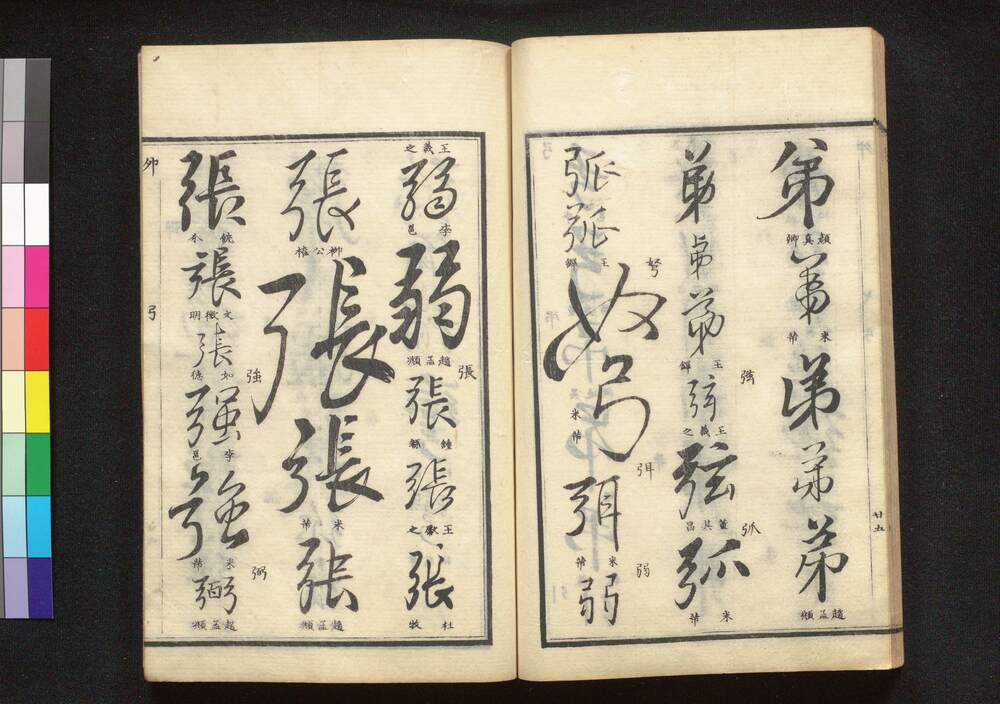 弟
顏真卿
弟
米芾
弟
弟
弟
趙孟頫
廿五
弟
弟
弟
王鐸
弦
弦
王羲之
弦
董其昌
弧
弧
米芾
弧
弧
王鐸
弩
弩
米芾
弭
弭
米芾
弱
弱
王羲之
弱
李邕
弱
趙孟頫
張
張
鍾繇
張
王獻之
張
杜牧
張
柳公權
張
張
米芾
張
趙孟頫
張
張
文徵明
張
強
強
李邕
強
米芾
弼
弼
趙孟頫
弓